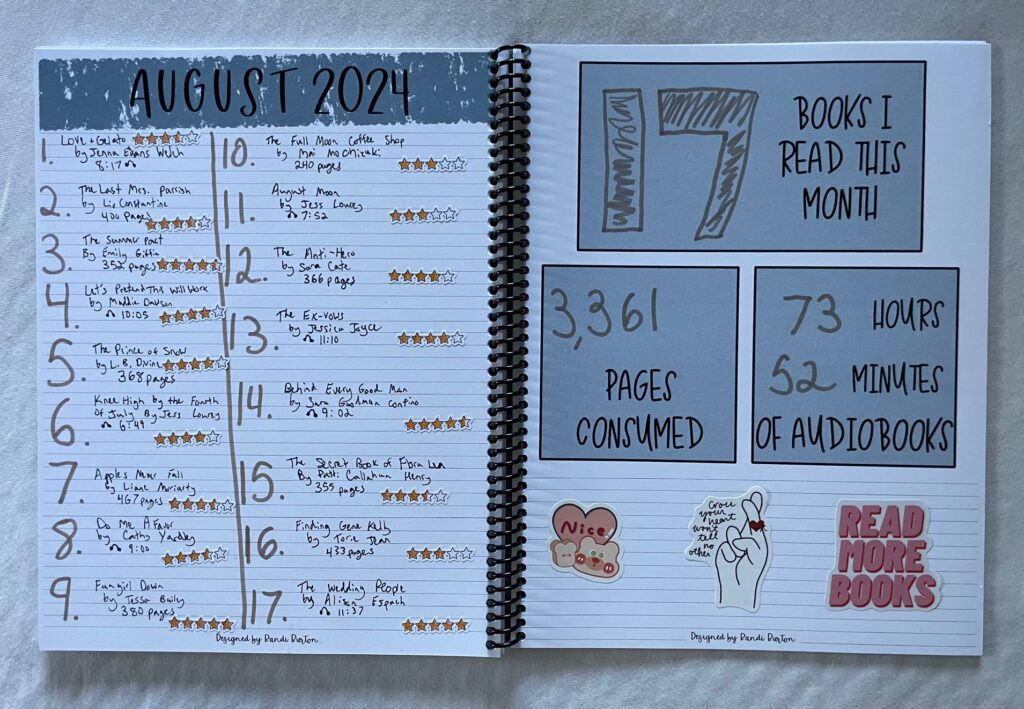 AUGUST 2024
1. Love + Gelato
by Jenna Evans Welch
8:17
2. The Last Mrs. Parrish
by Liv Constantine
400 pages
3. The Summer Pact
By Emily Giffin
352 pages
4. Let's Pretend This Will Work
by Maddie Dawson
10:05
5. The Prince of Snow
by L.B. Divine
368 pages
6. Knee High by the Fourth
Of July By Jess Lourey
6:49
7. Apples Never Fall
by Liane Moriarty
467 pages
8. Do Me A Favor
by Cathy Yardley
9:00
9. Fangirl Down
by Tessa Bailey
380 pages
10. The Full Moon Coffee Shop
by Mai Mochizuki
240 pages
11. August Moon
by Jess Lourey
7:52
12. The Anti-Hero
by Sara Cate
366 pages
13. The Ex-Vows
by Jessica Joyce
11:10
14. Behind Every Good Man
by Sara Goodman Confino
9:02
15. The Secret Book of Flora Lea
By Patti Callahan Henry
355 pages
16. Finding Gene Kelly
by Torie Jean
433 pages
17. The Wedding People
by Alison Espach
11:37
Designed by Randi Burton
17
BOOKS I
READ THIS
MONTH
3,361
PAGES
CONSUMED
73 HOURS
52 MINUTES
OF AUDIOBOOKS
Nice.
Cross
your
heart
won't
tell
no
other
READ
MORE
BOOKS
Designed by Randi Burton